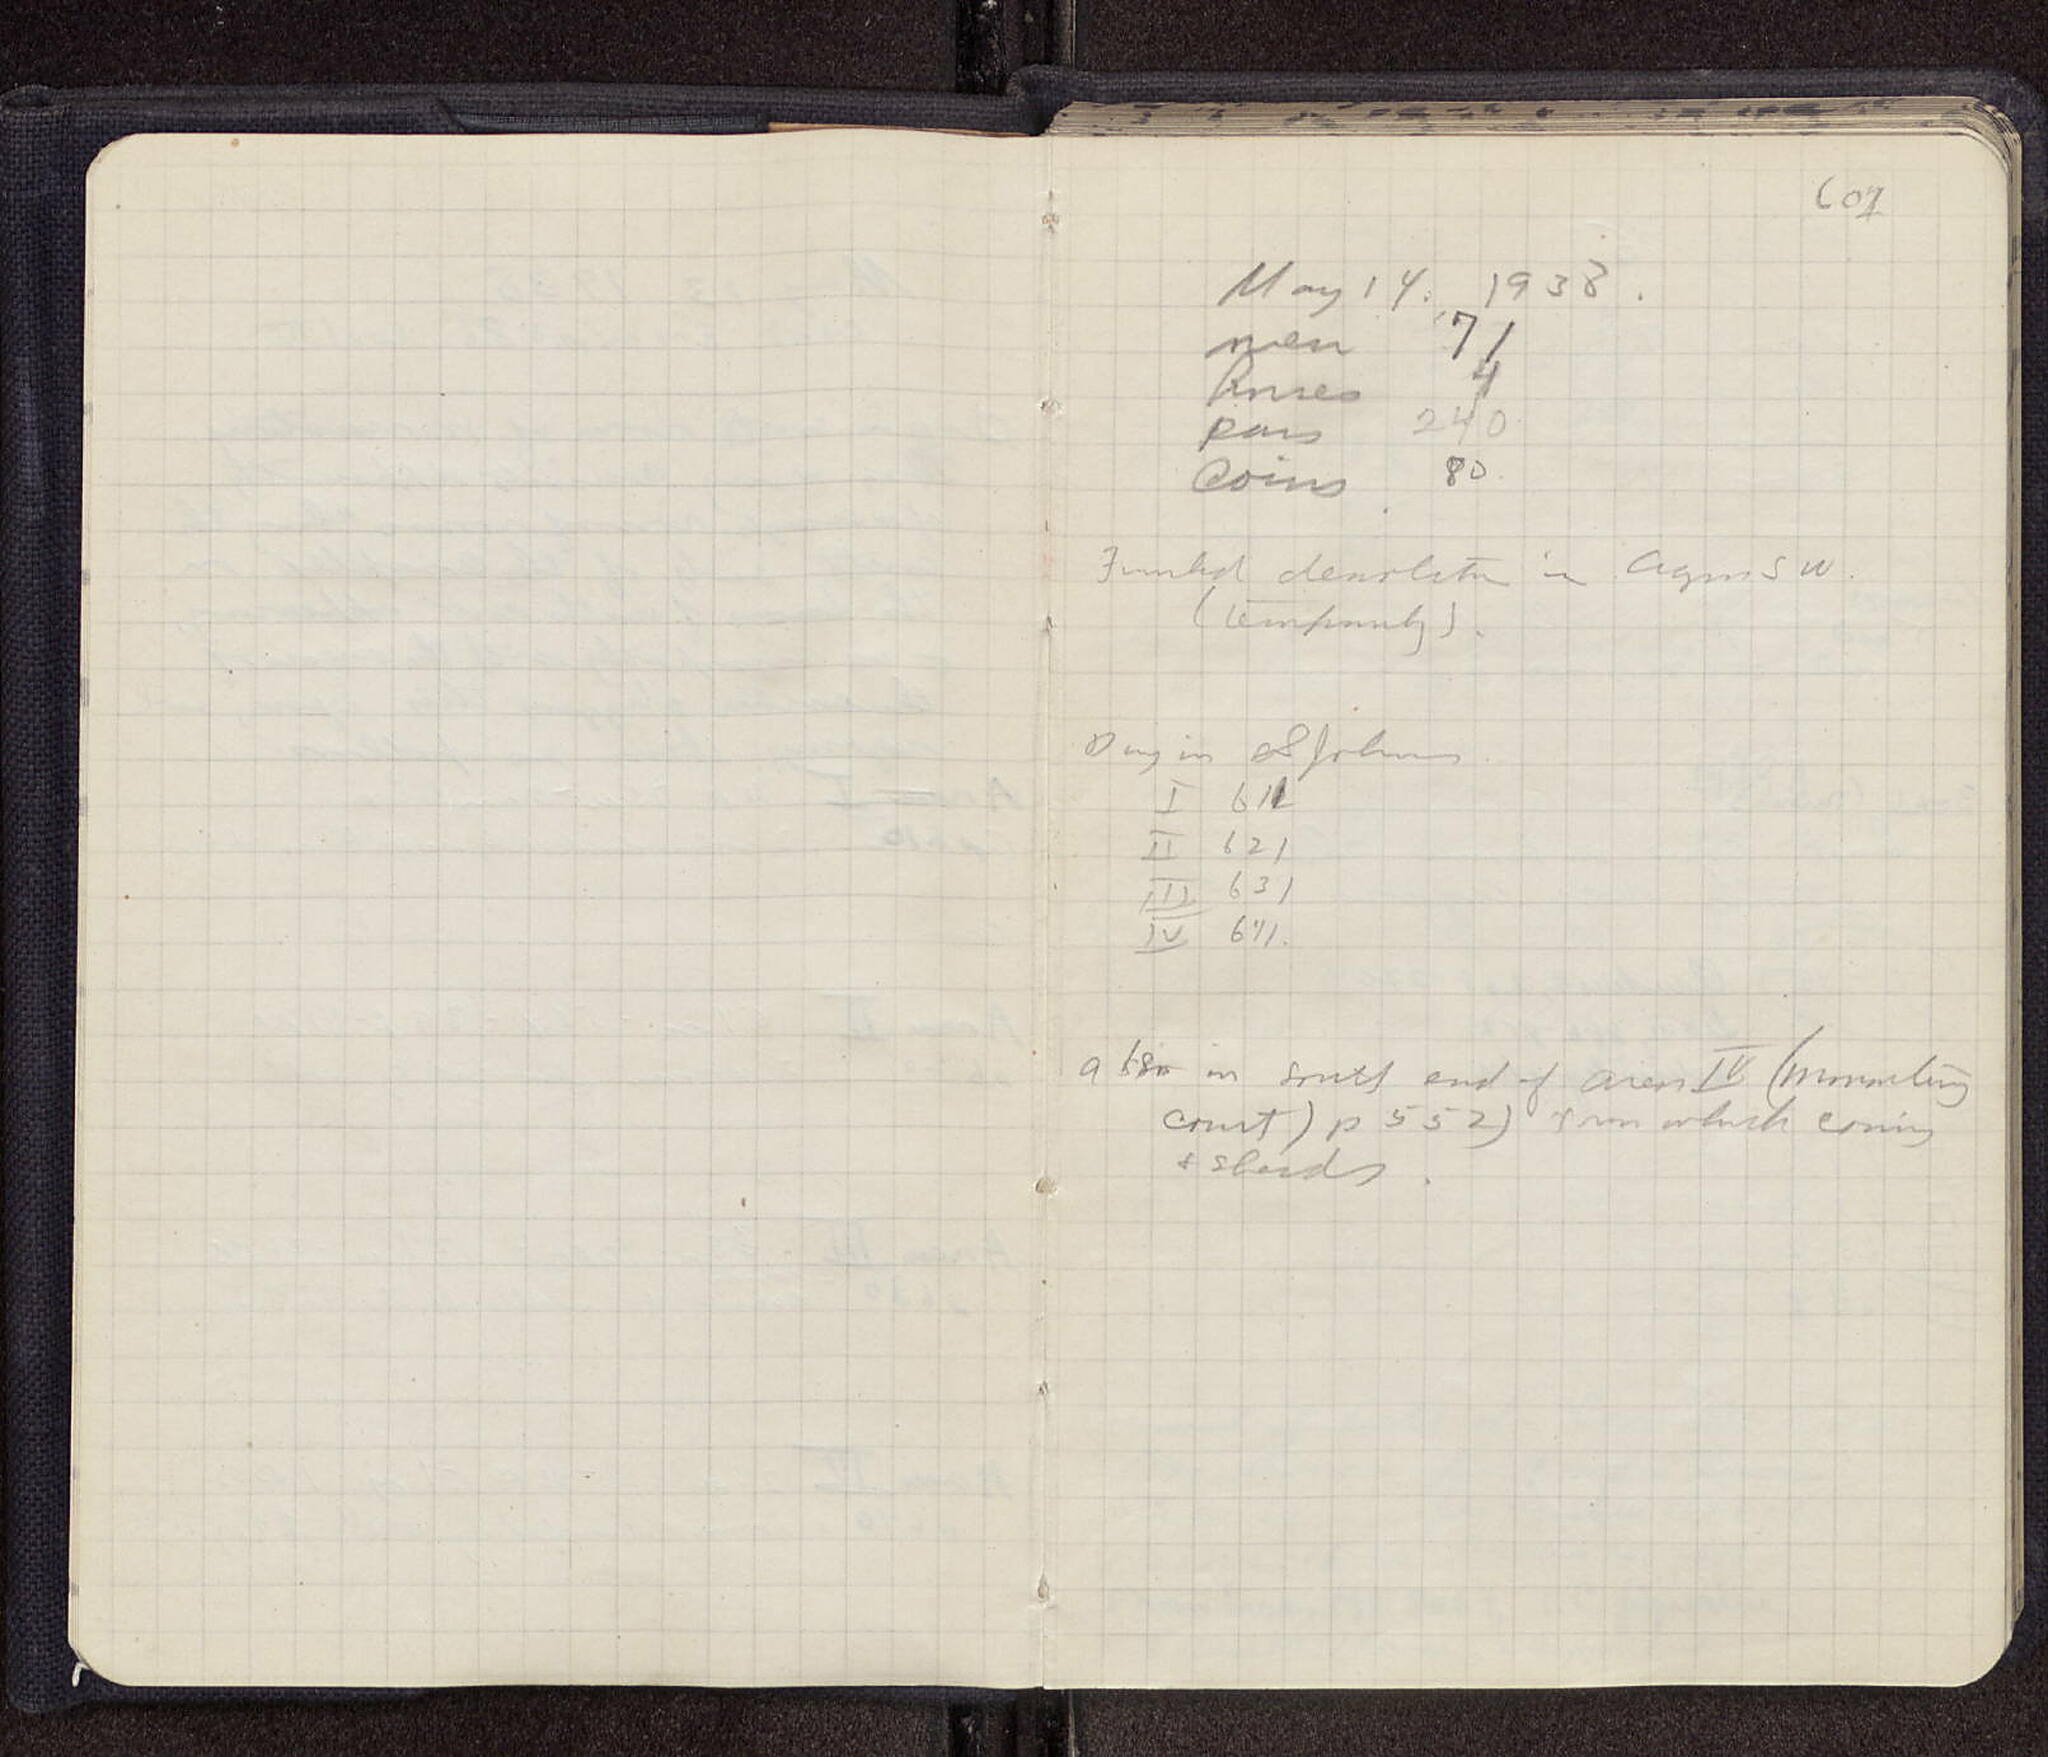 607
May 14. 1938.
men 71
horses 4
pais 240
coins 80.
Finished demolition in Agora S W.
(temporarily).
Dug in St Johns
I 611
II 621
III 631
IV 671.
also in south end of area IV (monastery
court) p 552) from which coins
+ sherds.